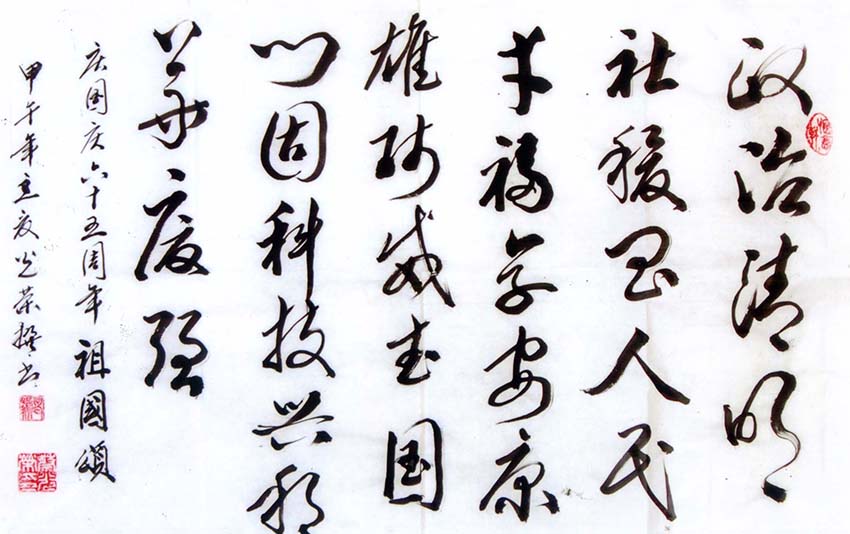 政治清明
社稷昌人民
幸福享安康
雄师威武国
门固科技兴邦
華夏强
庆国庆六十五周年 祖國頌
甲午年夏光荣撰书